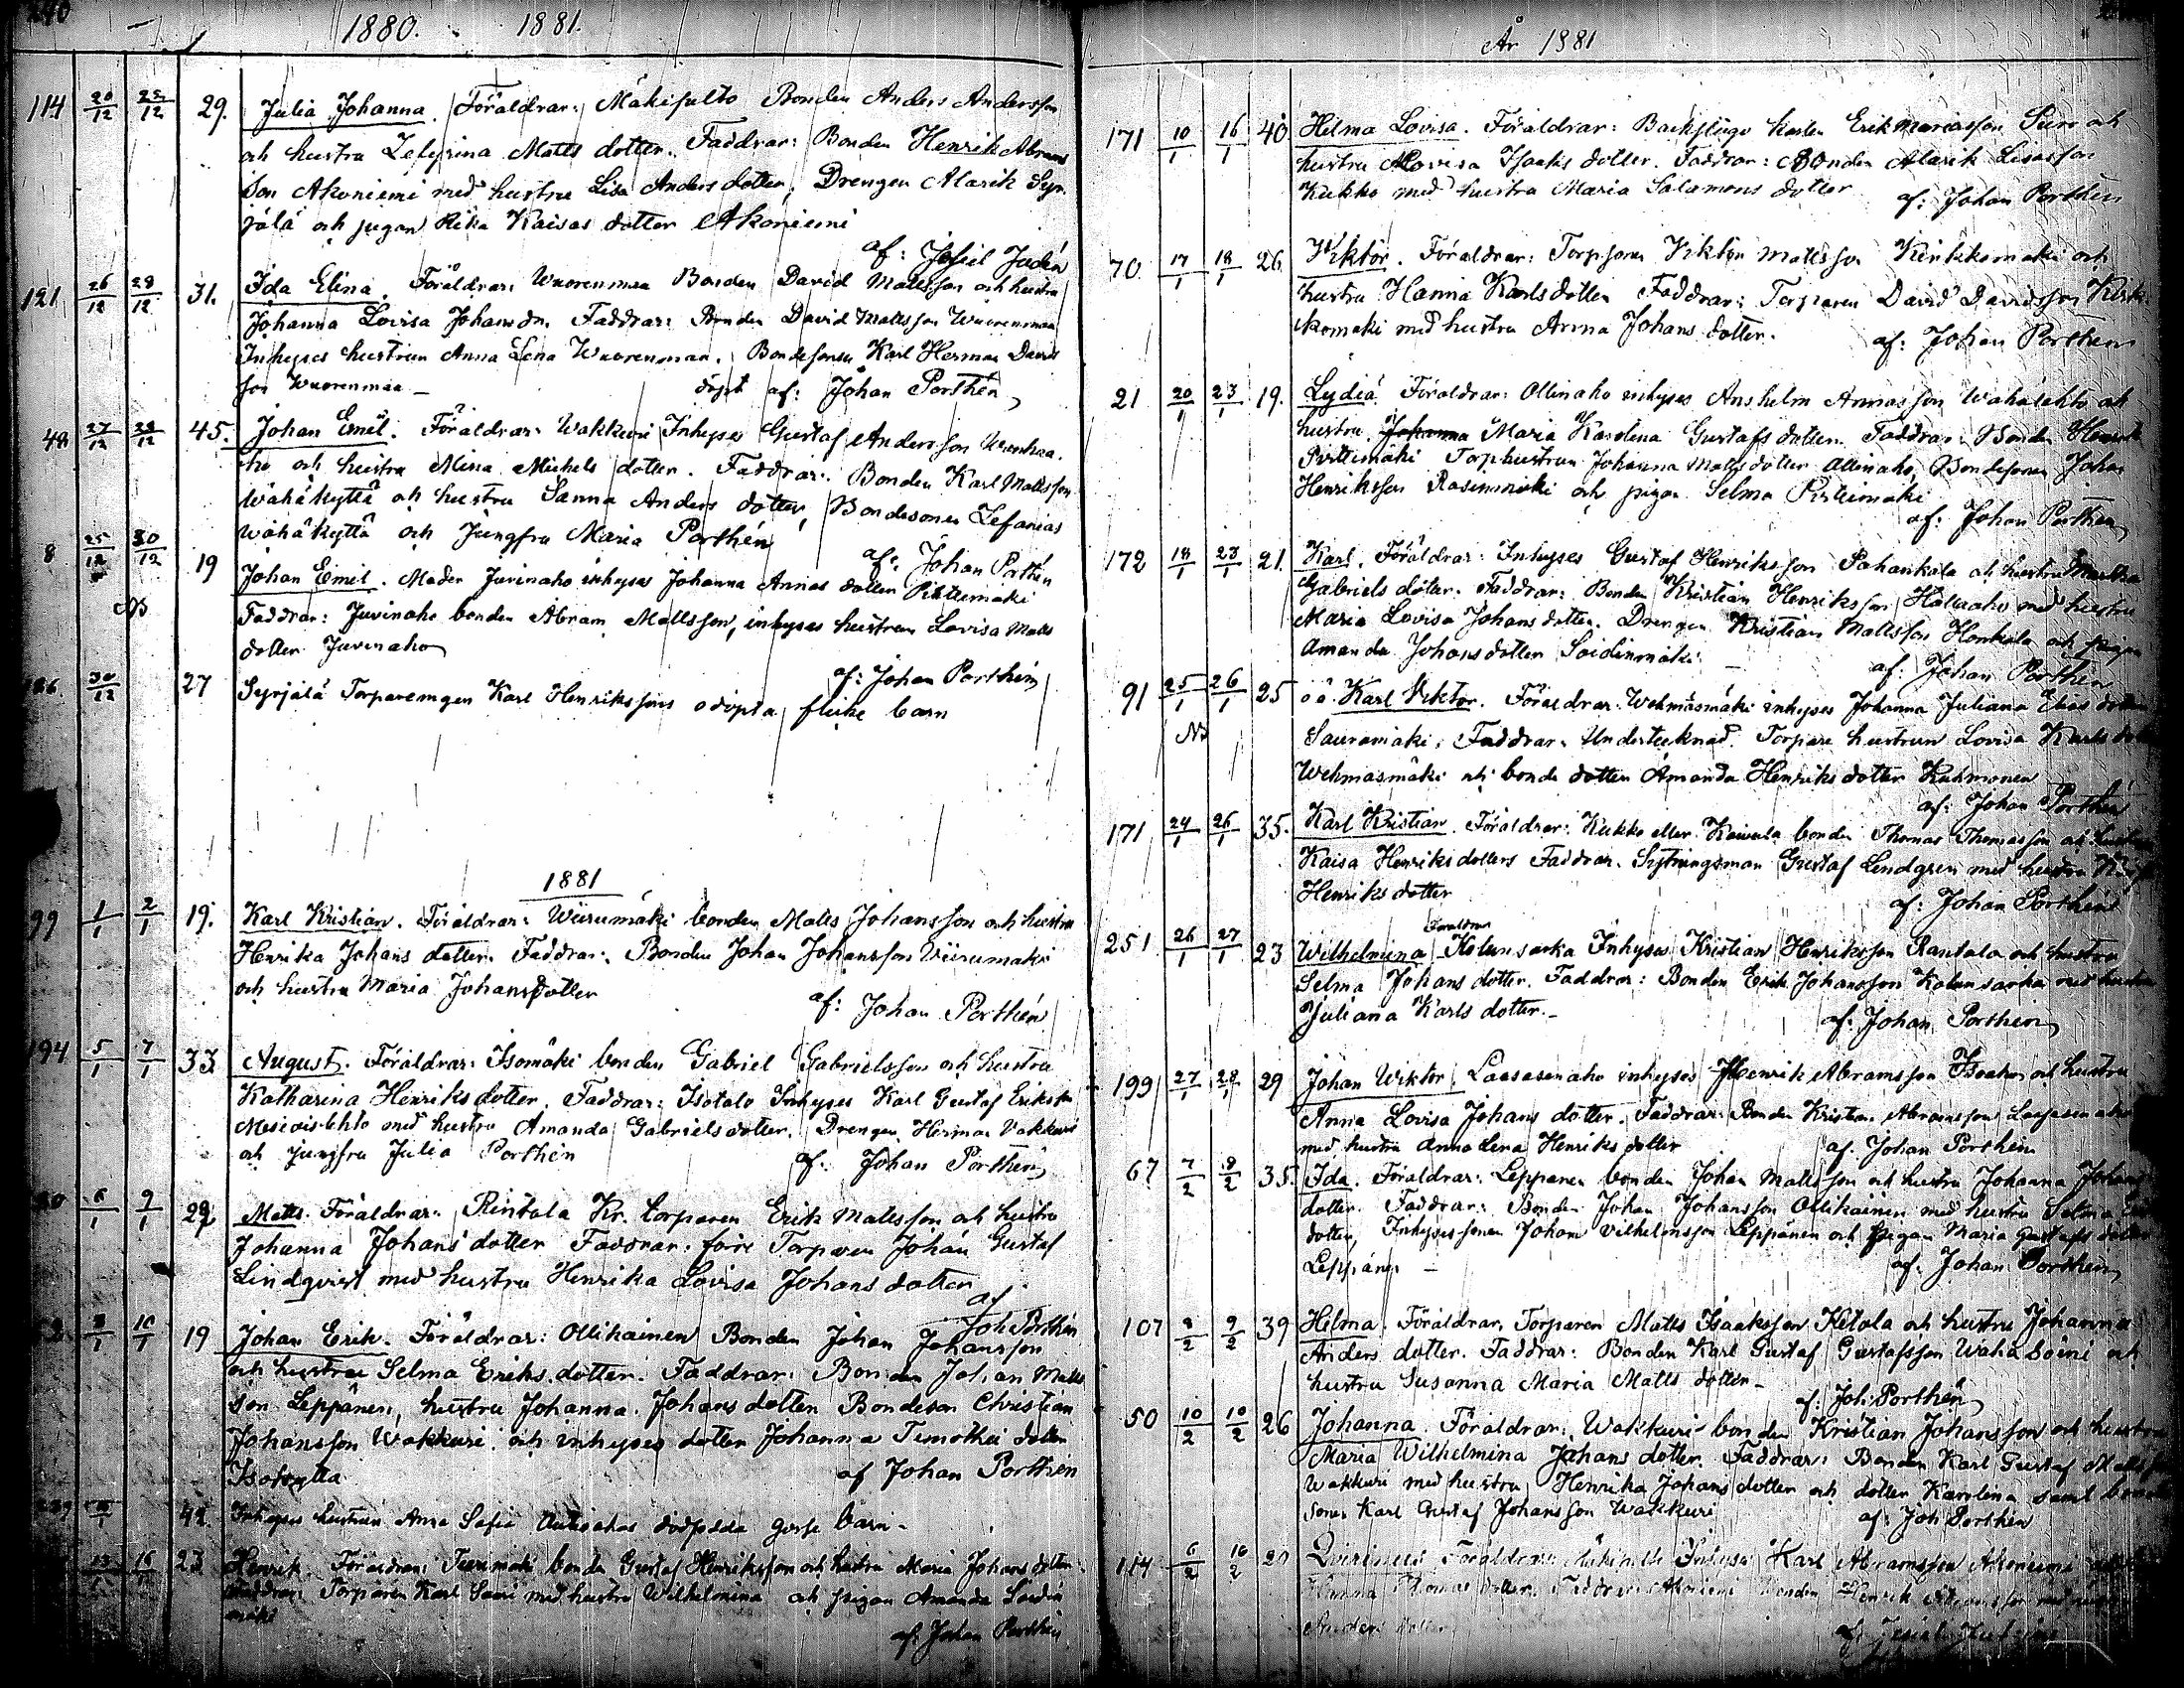 240
1880. 1881.
114 20/12 25/12 29. Julia Johanna. Föräldrar: Mäkipelto Bonden Anders Andersson
och hustru Zefyrina Matts dotter. Faddrar: Bonden Henrik Abrams
son Akoniemi med hustru Lisa Anders dotter, Drengen Alarik Syr-
jälä och pigan Rika Kaisas dotter Akoniemi
af:
121 26/12 28/12 31. Ida Elina. Föräldrar: Wuorenmaa Bonden David Mattsson och hustru
Johanna Lovisa Johansdr. Faddrar: Bonden David Mattsson Wuorenmaa
Inhyses hustrun Anna Lena Wuorenmaa. Bondesonen Karl Herman Davids
son Wuorenmaa – döpt af: Johan Porthén
48 27/12 28/12 45. Johan Emil. Föräldrar: Wakkuri Inhyses Gustaf Andersson
och hustru Mina Michels dotter. Faddrar: Bonden Karl Mattsson
Wähäkyttä och hustru Sanna Anders dotter, Bondesonen Zefanias
Wähäkyttä och Jungfru Maria Porthén
af: Johan Porthén
8 25/12 30/12 19 Johan Emil. Moder Juvinaho inhyses Johanna Annas dotter Pirttimäki
Faddrar: Juvinaho bonden Abram Mattsson, inhyses hustrun Lovisa Matts
dotter Juvinaho
af: Johan Porthén
30/12 27 Syrjälä Torparemgen Karl Henrikssons odöpta flicke barn
1881
99 1/1 2/1 19. Karl Kristian. Föräldrar: Wiirumäki bonden Matts Johansson och hustru
Henrika Johans dotter. Faddrar: Bonden Johan Johansson Wiirumäki
och hustru Maria Johansdotter
af: Johan Porthén
194 5/1 7/1 33 August. Föräldrar: Isomäki bonden Gabriel Gabrielsson och hustru
Katharina Henriks dotter. Faddrar: Isotalo Inhyses Karl Gustaf Eriksson
med hustru Amanda Gabriels dotter. Drengen Herman Vakkuri
och jungfru Julia Porthén af: Johan Porthén
6/1 9/1 29 Matts. Föräldrar: Rintala Kr. torparen Erik Mattsson och hustru
Johanna Johans dotter Faddrar: före Torparen Johan Gustaf
Lindqvist med hustru Henrika Lovisa Johans dotter
af
Joh Porthén
10/1 19 Johan Erik. Föräldrar: Ollikainen Bonden Johan Johansson
och hustru Selma Eriks dotter. Faddrar: Bonden Johan Matts
son Leppänen, hustru Johanna Johans dotter Bondeson Christian
Johansson Wakkuri och inhyses dotter Johanna Timothei dotter
Isokyttä af Johan Porthén
Inhyses hustrun Anna Sofia dödfödda gosse barn –
16/1 23 Henrik. Föräldrar: bonde Gustaf Henriksson och hustru Maria Johans dotter
Faddrar: Torparen Karl Saari med hustru Wilhelmina och pigan Amanda Soidin
mäki
af: Johan Porthén
År 1881
171 10/1 16/1 40 Helma Lovisa. Föräldrar: Backstugo karlen Erik Mariasson och
hustru Lovisa Isaaks dotter. Faddrar: Bonden Alarik Lisasson
Kukko med hustru Maria Salomons dotter
af: Johan Porthén
70 17/1 18/1 26 Viktor. Föräldrar: Torpsonen Viktor Mattsson Kirkkomäki och
hustru Hanna Karls dotter Faddrar: Torparen David Davidsson Kirk-
komäki med hustru Anna Johans dotter.
af: Johan Porthén
21 20/1 23/1 19. Lydia. Föräldrar: Ollinaho inhyses Anshelm Annasson Wähälehto och
hustru Johanna Maria Karolina Gustafs dotter. Faddrar: Bonden Henrik
Pirttimäki Torphustrun Johanna Matts dotter Ollinaho, Bondesonen Johan
Henriksson Rasinmäki och pigan Selma Pirttimäki
af: Johan Porthén
172 18/1 23/1 21. Karl. Föräldrar: Inhyses Gustaf Henriksson Pahankala och hustru
Gabriels dotter. Faddrar: Bonden Kristian Henriksson med hustru
Maria Lovisa Johans dotter. Drengen Kristian Mattsson Honkala och pigan
Amanda Johans dotter Soidinmäki –
af: Johan Porthén
91 25/1 26/1 25 o ä Karl Viktor. Föräldrar: Wehmasmäki inhyses Johanna Juliana Elias dotter
Sauramäki. Faddrar: Undertecknad. Torpare hustrun Lovisa Karls dotter
Wehmasmäki och bonde dotter Amanda Henriks dotter Kuhmonen
af: Johan Porthén
171 24/1 26/1 35. Karl Kristian. Föräldrar: Kukko eller Koivula bonden Thomas Thomasson och hustru
Kaisa Henriksdotters Faddrar. Sytningsman Gustaf Lindgren med hustru
Henriks dotter
af: Johan Porthén
Föräldrar
251 26/1 27/1 23 Wilhelmina Kolunsarka Inhyses Kristian Henriksson Rantala och hustru
Selma Johans dotter. Faddrar: Bonden Erik Johansson Kolunsarka med hustru
Juliana Karls dotter. –
af: Johan Porthén
199 27/1 28/1 29 Johan Wiktor Laasasenaho inhyses Henrik Abramsson Isoaho och hustru
Anna Lovisa Johans dotter. Faddrar: Bonden Kristian Abramsson Laasasenaho
med hustru Anna Lena Henriks dotter af: Johan Porthén
67 7/2 9/2 35. Ida. Föräldrar: Leppänen bonden Johan Mattsson och hustru Johanna Johans
dotter. Faddrar: Bonden Johan Johansson Ollikainen med hustru Selma Eriks
dotter, Inhysessonen Johan Vilhelmsson Leppänen och pigan Maria Gustafs dotter
Leppänen – af: Johan Porthén
107 8/2 9/2 39 Helma. Föräldrar, Torparen Matts Isaaksson Ketola och hustru Johanna
Anders dotter. Faddrar: Bonden Karl Gustaf Gustafsson Wähä Soini och
hustru Susanna Maria Matts dotter –
af: Joh: Porthén
50 10/2 10/2 26 Johanna. Föräldrar: Wakkuri bonden Kristian Johansson och hustru
Maria Wilhelmina Johans dotter. Faddrar: Bonden Karl Gustaf Mattsson
Wakkuri med hustru Henrika Johans dotter och dotter Karolina samt bonde
sonen Karl Gustaf Johansson Wakkuri af: Joh Porthén
114 6/2 16/2 20 Föräldrar: Mäkipelto Inhyses Karl Abramsson Akoniemi
Hanna Thomas dotter. Faddrar: Akoniemi Bonden Henrik Abramsson med
Anders dotter
af: